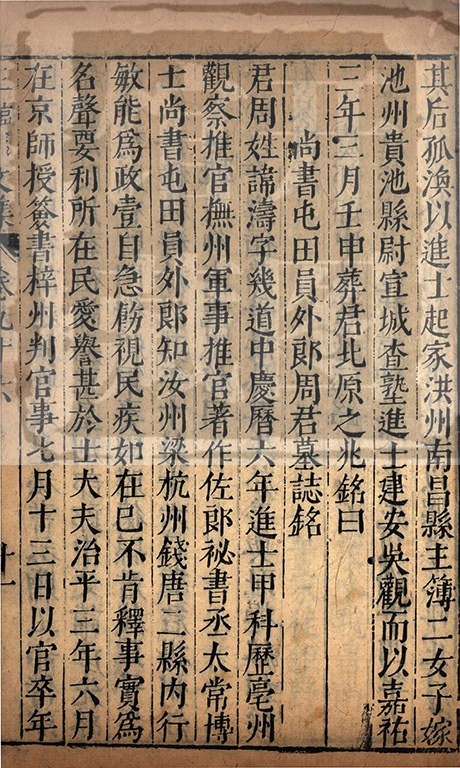 其后孤渙以進士起家洪州南昌縣主簿二女子嫁
池州貴池縣尉宣城查塾進士建安吳觀而以嘉祐
三年三月壬申葬君北原之兆銘曰
尚書屯田員外郎周君墓誌銘
君周姓諱濤字幾道中慶曆六年進士甲科歷亳州
觀察推官撫州軍事推官著作佐郎祕書丞太常博
士尚書屯田員外郎知汝州梁杭州錢唐二縣內行
敏能為政壹自急飭視民疾如在己不肯釋事實為
名聲要利所在民愛譽甚於士大夫治平三年六月
在京師授簽書梓州判官事七月十三日以官卒年
文集 卷九十六 十一